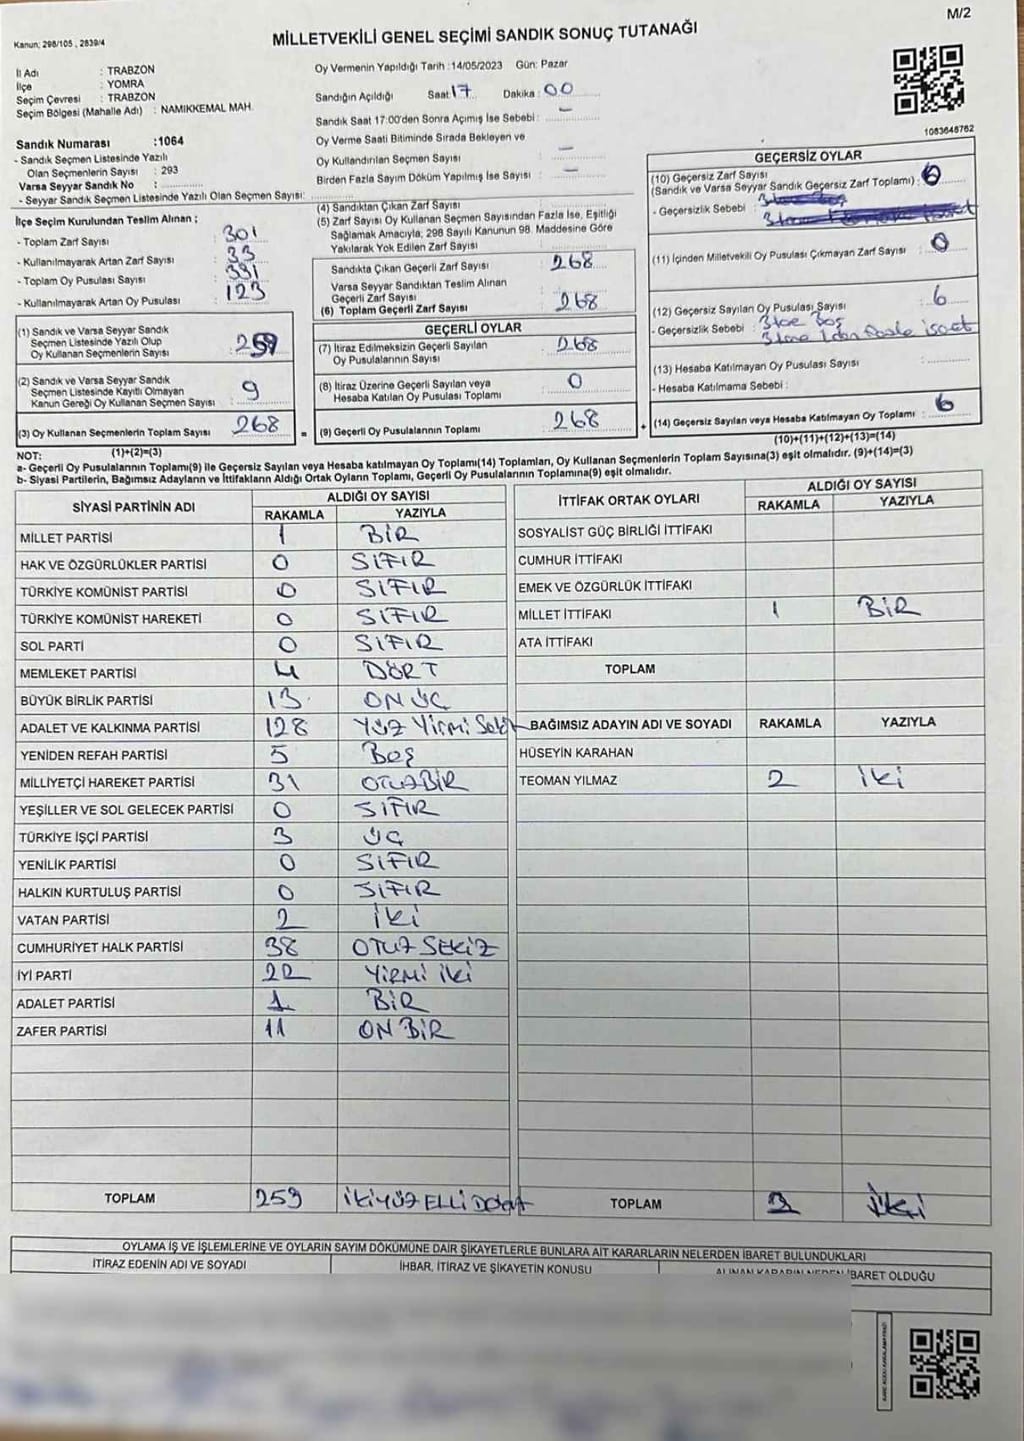 M/2
Kanun; 298/105 , 2839/4
MİLLETVEKİLİ GENEL SEÇİMİ SANDIK SONUÇ TUTANAĞI
İl Adı : TRABZON
İlçe : YOMRA
Seçim Çevresi : TRABZON
Seçim Bölgesi (Mahalle Adı) : NAMIKKEMAL MAH.
Sandık Numarası :1064
- Sandık Seçmen Listesinde Yazılı
Olan Seçmenlerin Sayısı : 293
Varsa Seyyar Sandık No :
- Seyyar Sandık Seçmen Listesinde Yazılı Olan Seçmen Sayısı:
Oy Vermenin Yapıldığı Tarih :14/05/2023 Gün: Pazar
Sandığın Açıldığı Saat 17 Dakika : 00
Sandık Saat 17:00'den Sonra Açımış İse Sebebi : -
Oy Verme Saati Bitiminde Sırada Bekleyen ve
Oy Kullandırılan Seçmen Sayısı : -
Birden Fazla Sayım Döküm Yapılmış İse Sayısı : -
1083648762
İlçe Seçim Kurulundan Teslim Alınan ;
- Toplam Zarf Sayısı : 301
- Kullanılmayarak Artan Zarf Sayısı : 33
- Toplam Oy Pusulası Sayısı : 391
- Kullanılmayarak Artan Oy Pusulası : 123
(1) Sandık ve Varsa Seyyar Sandık
Seçmen Listesinde Yazılı Olup
Oy Kullanan Seçmenlerin Sayısı : 259
(2) Sandık ve Varsa Seyyar Sandık
Seçmen Listesinde Kayıtlı Olmayan
Kanun Gereği Oy Kullanan Seçmen Sayısı : 9
(3) Oy Kullanan Seçmenlerin Toplam Sayısı : 268
(1)+(2)=(3)
(4) Sandıktan Çıkan Zarf Sayısı :
(5) Zarf Sayısı Oy Kullanan Seçmen Sayısından Fazla İse, Eşitliği
Sağlamak Amacıyla; 298 Sayılı Kanunun 98. Maddesine Göre
Yakılarak Yok Edilen Zarf Sayısı :
Sandıkta Çıkan Geçerli Zarf Sayısı : 268
Varsa Seyyar Sandıktan Teslim Alınan
Geçerli Zarf Sayısı :
(6) Toplam Geçerli Zarf Sayısı : 268
GEÇERLİ OYLAR
(7) İtiraz Edilmeksizin Geçerli Sayılan
Oy Pusulalarının Sayısı : 268
(8) İtiraz Üzerine Geçerli Sayılan veya
Hesaba Katılan Oy Pusulası Toplamı : 0
= (9) Geçerli Oy Pusulalarının Toplamı : 268
GEÇERSİZ OYLAR
(10) Geçersiz Zarf Sayısı
(Sandık ve Varsa Seyyar Sandık Geçersiz Zarf Toplamı) :
- Geçersizlik Sebebi :
(11) İçinden Milletvekili Oy Pusulası Çıkmayan Zarf Sayısı : 0
(12) Geçersiz Sayılan Oy Pusulası Sayısı : 6
- Geçersizlik Sebebi : 3 tane Boş
3 tane 1 den Fazla işaret
(13) Hesaba Katılmayan Oy Pusulası Sayısı :
- Hesaba Katılmama Sebebi :
+ (14) Geçersiz Sayılan veya Hesaba Katılmayan Oy Toplamı : 6
(10)+(11)+(12)+(13)=(14)
NOT:
a- Geçerli Oy Pusulalarının Toplamı(9) ile Geçersiz Sayılan veya Hesaba katılmayan Oy Toplamı(14) Toplamları, Oy Kullanan Seçmenlerin Toplam Sayısına(3) eşit olmalıdır. (9)+(14)=(3)
b- Siyasi Partilerin, Bağımsız Adayların ve İttifakların Aldığı Ortak Oyların Toplamı, Geçerli Oy Pusulalarının Toplamına(9) eşit olmalıdır.
SİYASİ PARTİNİN ADI ALDIĞI OY SAYISI
RAKAMLA YAZIYLA
MİLLET PARTİSİ 1 BİR
HAK VE ÖZGÜRLÜKLER PARTİSİ 0 SIFIR
TÜRKİYE KOMÜNİST PARTİSİ 0 SIFIR
TÜRKİYE KOMÜNİST HAREKETİ 0 SIFIR
SOL PARTİ 0 SIFIR
MEMLEKET PARTİSİ 4 DÖRT
BÜYÜK BİRLİK PARTİSİ 13 ON ÜÇ
ADALET VE KALKINMA PARTİSİ 128 YÜZ Yirmi Sekiz
YENİDEN REFAH PARTİSİ 5 Beş
MİLLİYETÇİ HAREKET PARTİSİ 31 OTUZBİR
YEŞİLLER VE SOL GELECEK PARTİSİ 0 SIFIR
TÜRKİYE İŞÇİ PARTİSİ 3 ÜÇ
YENİLİK PARTİSİ 0 SIFIR
HALKIN KURTULUŞ PARTİSİ 0 SIFIR
VATAN PARTİSİ 2 İki
CUMHURİYET HALK PARTİSİ 38 OTUZ SEKİZ
İYİ PARTİ 22 YİRMİ İKİ
ADALET PARTİSİ 1 BİR
ZAFER PARTİSİ 11 ON BİR
TOPLAM 259 İKİYÜZ ELLİ DOKUZ
İTTİFAK ORTAK OYLARI ALDIĞI OY SAYISI
RAKAMLA YAZIYLA
SOSYALİST GÜÇ BİRLİĞİ İTTİFAKI
CUMHUR İTTİFAKI
EMEK VE ÖZGÜRLÜK İTTİFAKI
MİLLET İTTİFAKI 1 BİR
ATA İTTİFAKI
TOPLAM
BAĞIMSIZ ADAYIN ADI VE SOYADI RAKAMLA YAZIYLA
HÜSEYİN KARAHAN
TEOMAN YILMAZ 2 İki
TOPLAM 2 İki
OYLAMA İŞ VE İŞLEMLERİNE VE OYLARIN SAYIM DÖKÜMÜNE DAİR ŞİKAYETLERLE BUNLARA AİT KARARLARIN NELERDEN İBARET BULUNDUKLARI
İTİRAZ EDENİN ADI VE SOYADI İHBAR, İTİRAZ VE ŞİKAYETİN KONUSU ALINAN KARARIN NEDEN İBARET OLDUĞU